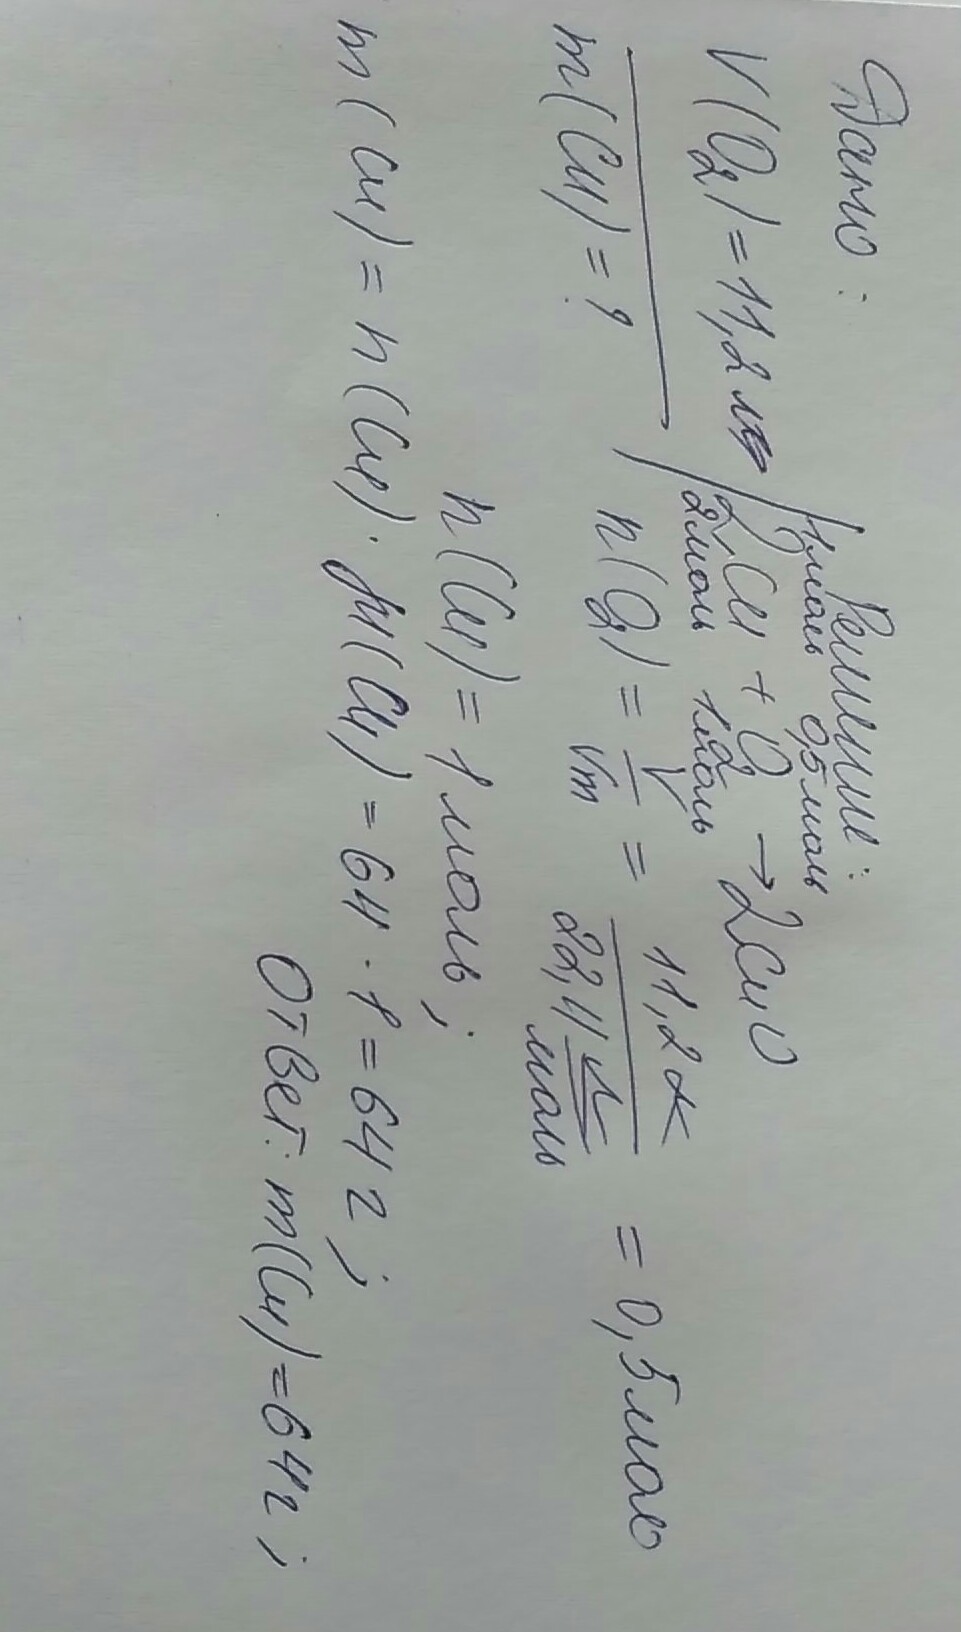 Дано:
V(O2)=11,2л
m(Cu)=?
Решение:
1моль 0,5моль
2Cu + O2 → 2CuO
2моль 1моль
n(O2) = V/Vm = 11,2л/22,4 л/моль = 0,5моль
n(Cu) = 1 моль;
m(Cu) = n(Cu) · M(Cu) = 64 · 1 = 64 г;
Ответ: m(Cu)=64г;